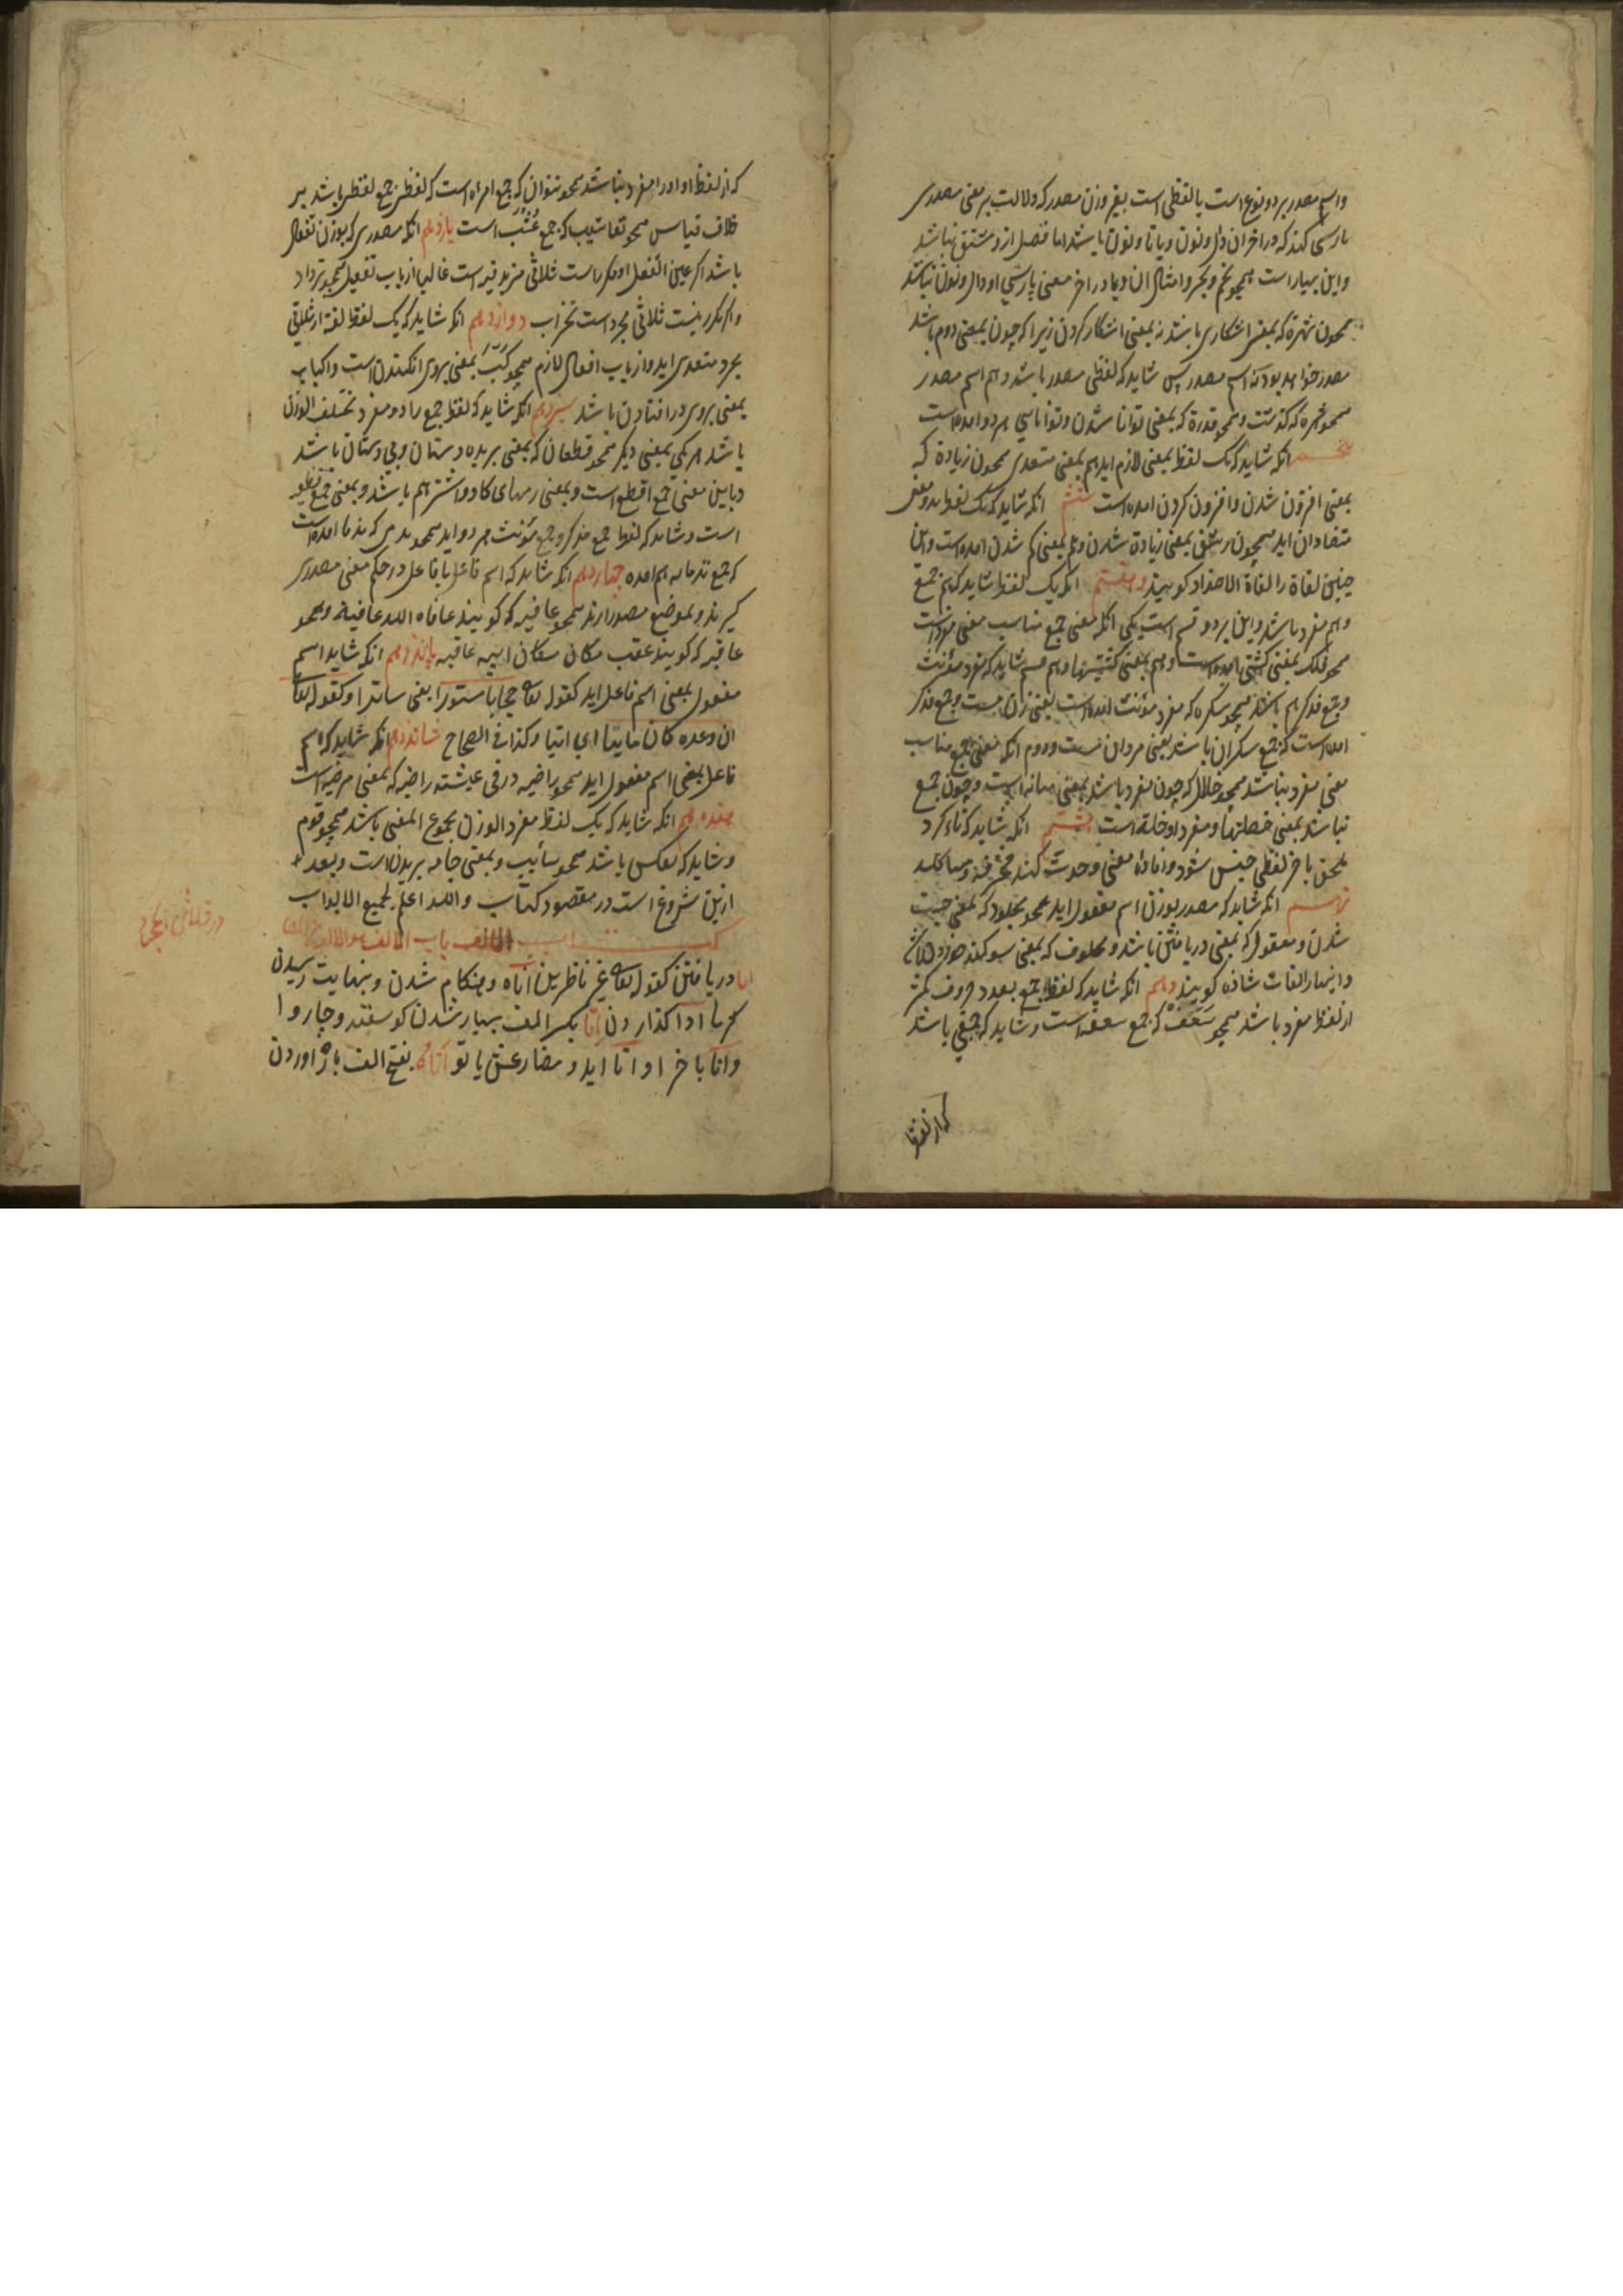 واسم مصدر بر دو نوع است یا لفظی است بغیر وزن مصدر که دلالت بر معنی مصدری
پارسی کند که در اخر آن دال و نون و یا تا و نون باشد اما فصل ازو مشتق نباشد
واین بسیار است همچو و امثال ان و یا در اخر معنی پارسی او دال و نون نباشد
همچون شهرة که بمعنی اشکاری باشد نه بمعنی اشکار کردن زیرا که چون بمعنی دوم باشد
مصدر خواهد بود نه اسم مصدر پس شاید که لفظی مصدر باشد و هم اسم مصدر
همچو شهره که گذشت و همچو قدرة که بمعنی توانا شدن و توانایی هر دو امده است
پنجم انکه شاید که یک لفظ بمعنی لازم اید هم بمعنی متعدی همچون زیادة که
بمعنی افزون شدن و افزون کردن امده است ششم انکه شاید که یک لفظ بدو معنی
متضادان اید همچون شق بمعنی زیادة شدن وهم بمعنی کم شدن امده است واین
چنین لغاة را لغاة الاضداد کویند وهفتم انکه یک لفظ شاید که هم جمع
و هم مفرد باشد واین بر دو قسم است یکی انکه معنی جمع مناسب معنی مفرد است
همچو فلک بمعنی کشتی امده است وهم بمعنی کشتیها وهم شاید که مفرد مؤنث
وجمع مذکر هم باشد همچو سکری که مفرد مؤنث امده است یعنی زن مست وجمع مذکر
امده است که جمع سکران باشد یعنی مردان مست ودوم انکه معنی جمع مناسب
معنی مفرد نباشد همچو خلال که چون مفرد باشد بمعنی میانه است وچون جمع
باشد بمعنی خصلتها ومفرد او خلة است هشتم انکه شاید که تاء کرد
ملحق باخر لفظی جنس شود وافاده معنی وحدت کند
نهم انکه شاید که مصدر بوزن اسم مفعول اید همچو مجلود که بمعنی چست
شدن ومعقول که بمعنی دریافتن باشد و محلوف که بمعنی سوکند خوردن است
واینها را لغات شاذه کویند دهم انکه شاید که لفظ جمع بعدد حروف کمتر
از لفظ مفرد باشد همچو سعف که جمع سعفه است وشاید که جمعی باشد
که از لفظ
که از لفظ او او را مفرد نباشد همچو نسوان که جمع امراه است که لفظی جمع لفظی باشد بر
خلاف قیاس همچو تعاشیب که جمع عشب است یازدهم انکه مصدری که بوزن تفعال
باشد اکر عین الفعل او مکرر است ثلاثی مزید فیه است غالبا از باب تفعیل همچو ترداد
واکر مکرر نیست ثلاثی مجرد است دوازدهم انکه شاید که یک لفظ لغة از ثلاثی
مجرد متعدی اید واز باب افعال لازم همچو کب بمعنی بروی افکندن است واکباب
بمعنی بروی در افتادن باشد سیزدهم انکه شاید که لفظ جمع راد ومفرد مختلف الوزن
باشد هر یکی بمعنی دیکر همچو قطعان که بمعنی بریده دستان وبی دستان باشد
وباین معنی جمع اقطع است وبمعنی رمهای کاو واشتر هم باشد وبمعنی جمع قطیع
است وشاید که لفظ جمع مذکر وجمع مؤنث هر دو اید همچو ندامی که ندما امده است
که جمع ندمانه هم امده چهاردهم انکه شاید که اسم فاعل یا فاعل در حکم معنی مصدری
کیرند وبموضع مصدر ارند همچو عافیه که کویند عافاه الله عافیة وهمچو
عاقبه که کویند عقب مکان ابیه عاقبه پانزدهم انکه شاید اسم
مفعول بمعنی اسم فاعل اید کقوله تعالی حجابا مستورا یعنی ساترا وکقوله تعالی
ان وعده کان ماتیا ای اتیا وکذا فی الصحاح شانزدهم انکه شاید که اسم
فاعل بمعنی اسم مفعول اید همچو راضیه در فی عیشته راضیه که بمعنی مرضیه است
هفدهم انکه شاید که یک لفظ مفرد الوزن مجموع المعنی باشد همچو قوم
وشاید که بعکس باشد همچو وبمعنی جامه بریدن است وبعد
ازین شروع است در مقصود کتاب والله اعلم بجمیع الابواب
کتاب الالف باب الالف مع الالف
در ثلاثی المجرد
انا دریافتن کقوله تعالی غیر ناظرین اناه وهنکام شدن وبنهایت رسیدن
ادا کذاردن اتا بکسر الف بسیار شدن کوسفند وچاروا
واتا باخر او اتا اید ومضارعش یاتو اتاء بفتح الف بار اوردن